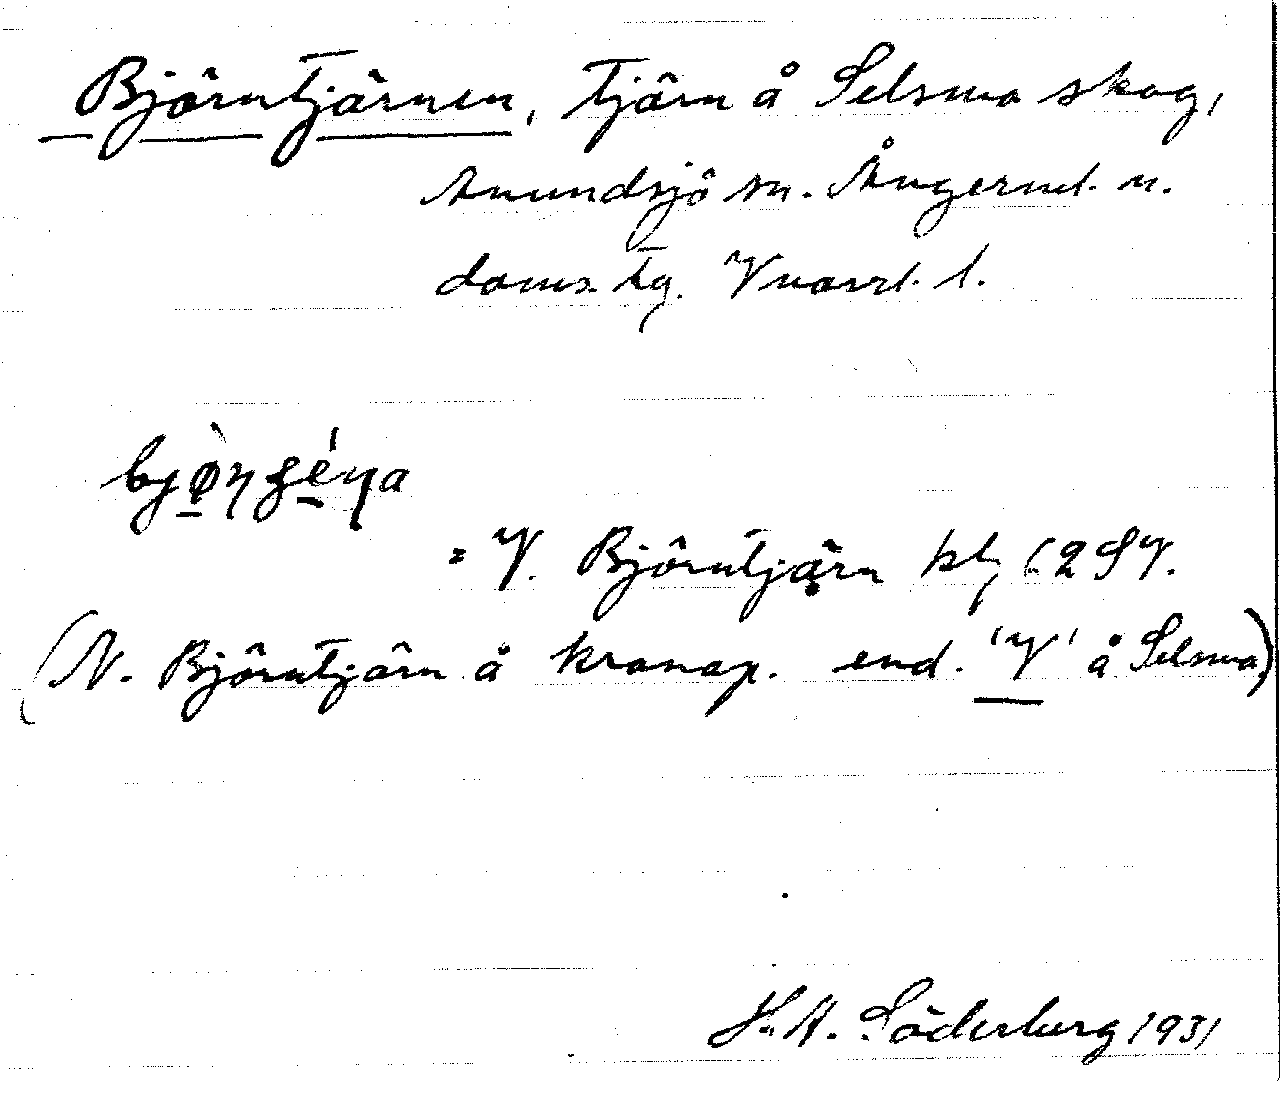 Björntjärnen, tjärn å Selsmo skog,
Anundsjö sn. Ångerml. n.
doms. tg. Vnorrl. l.
= V. Björntjärn kbl 62 SV.
(N. Björntjärn å kronop. end. 'V' å Selsmo)
H. A. Söderberg 1931